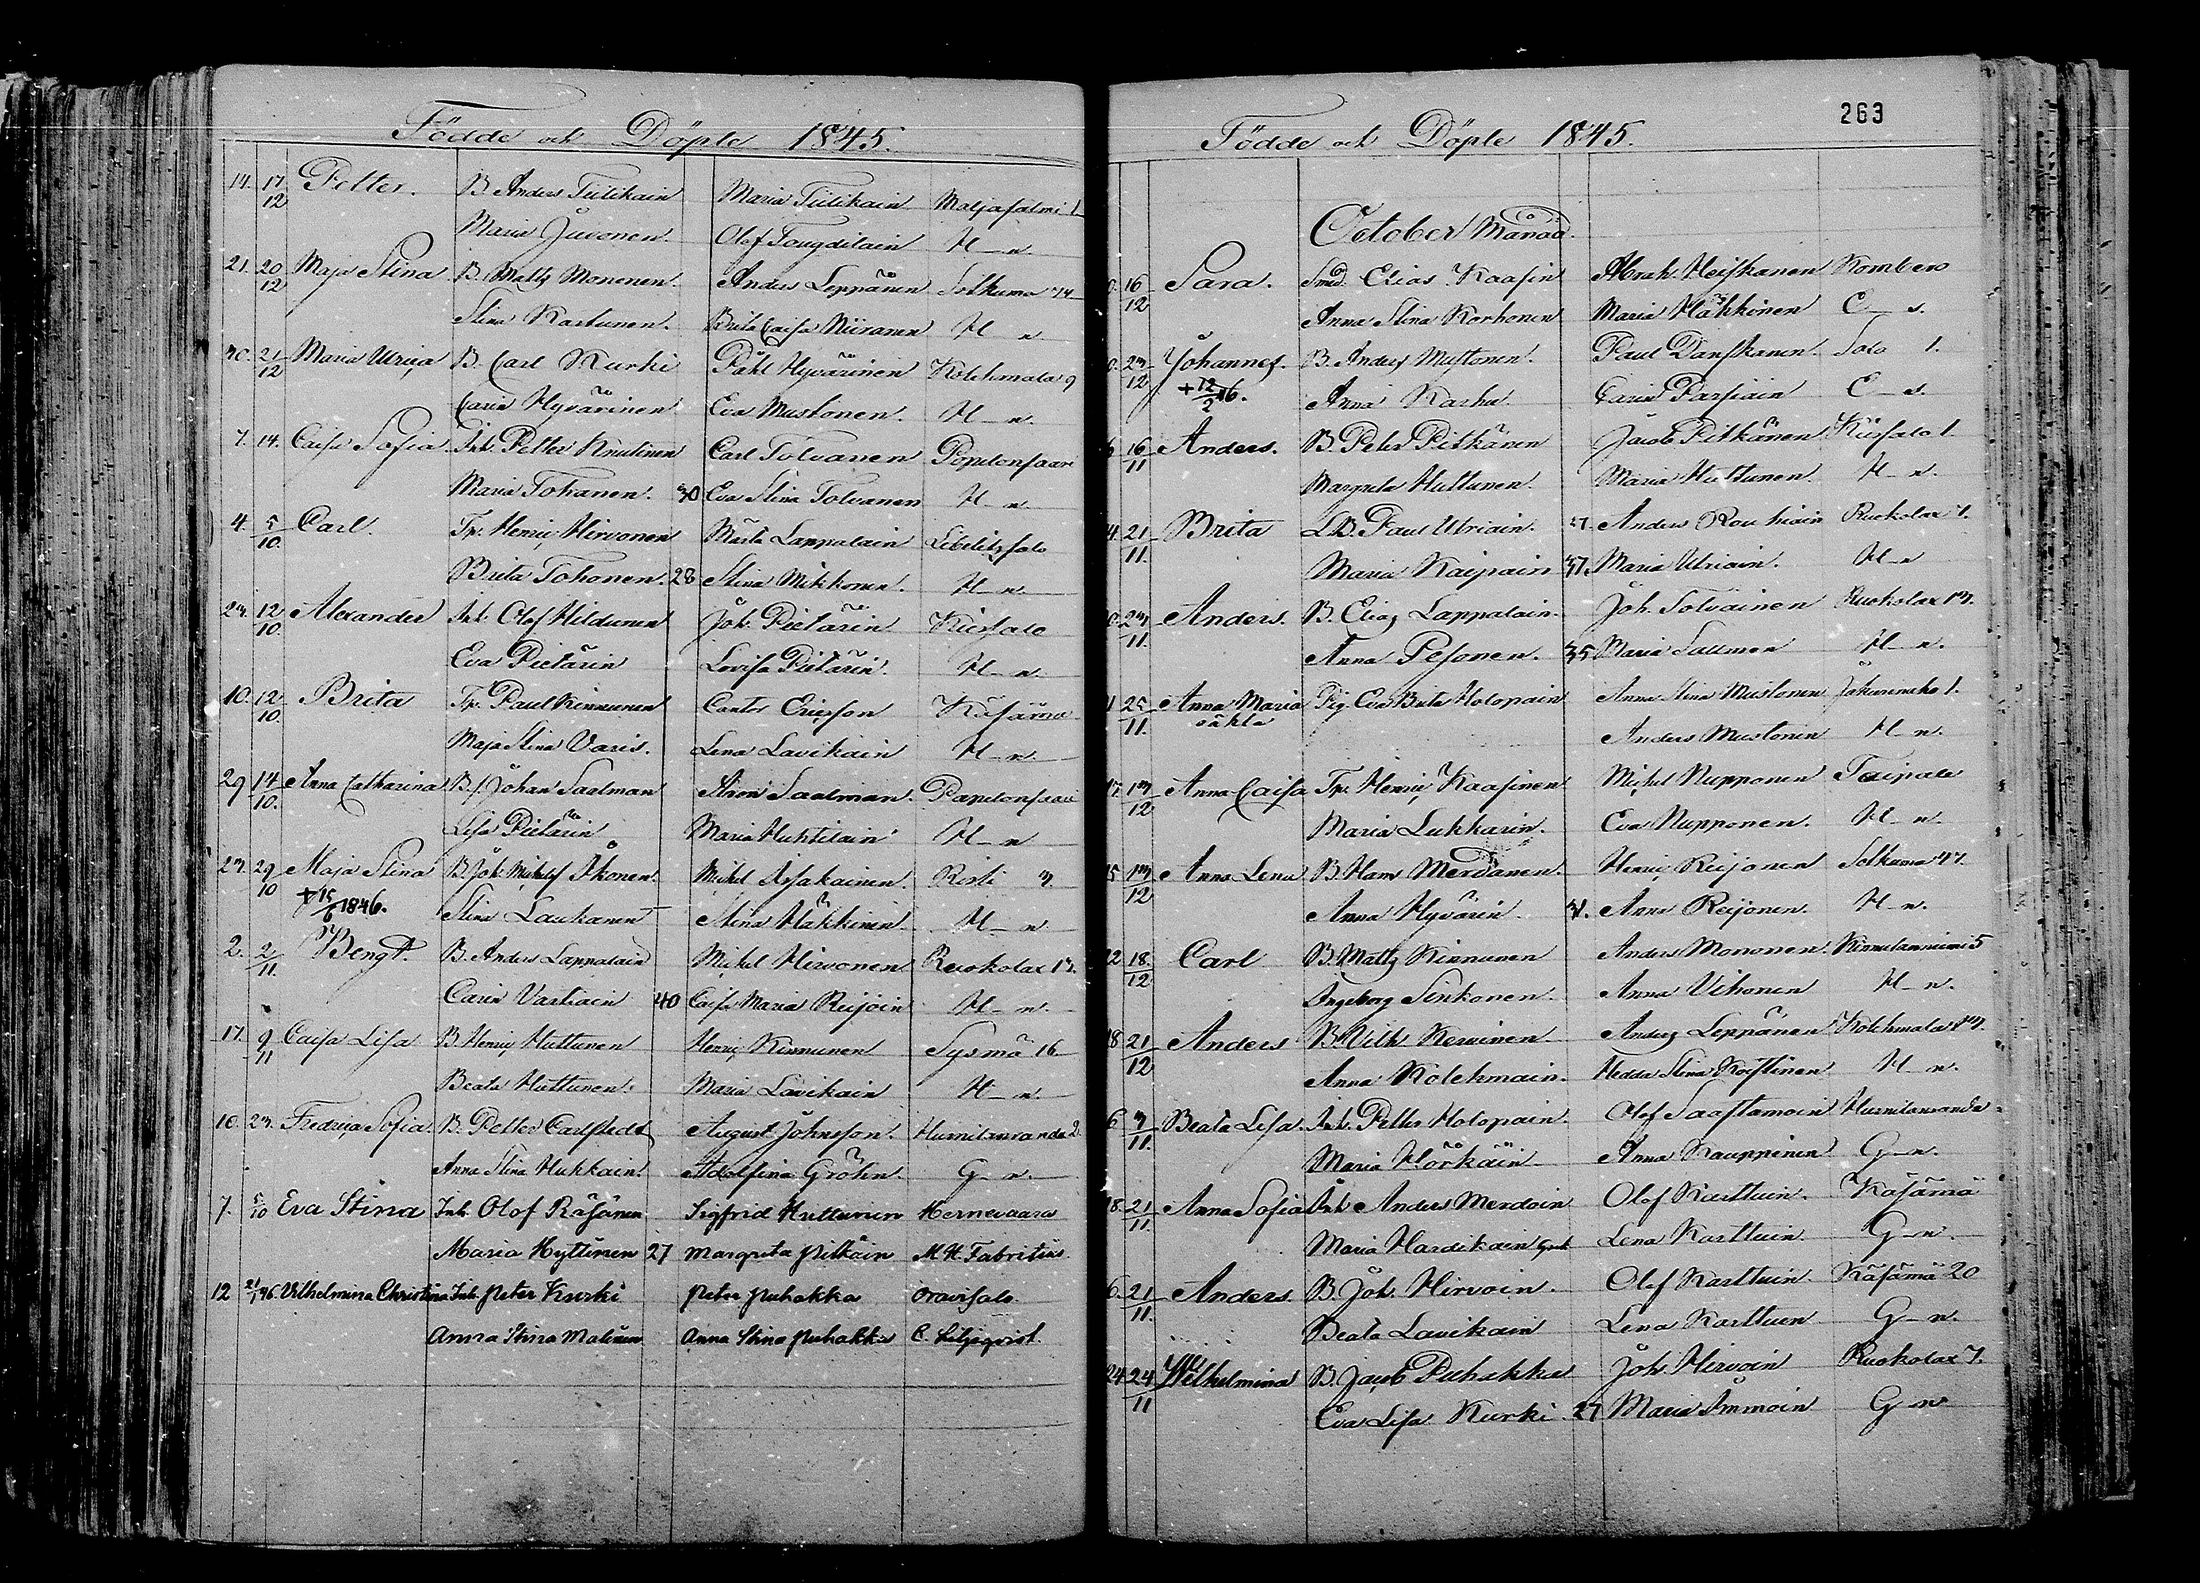 Födde och Döpte 1845.
14. 17/12 Petter. B. Anders Tiilikain Maria Tiilikain Maljasalmi 1
Maria Juvonen. Olof Tougdilain H_n.
21. 20/12 Maja Stina B. Matts Mononen. Anders Leppänen Solkuma 44
Stina Karhunen. Brita Caisa Niiranen H_n.
30. 21/12 Maria Ulrica B. Carl Kurki Påhl Hyvärinen Kolehmala 9
Carin Hyvärinen Eva Mustonen. H_n.
7. 14. Caisa Sofia. Inh. Petter Knutinen Carl Tolvanen Papelonsaari
Maria Tohanen. 30 Eva Stina Tolvanen H_n
4. 5/10. Carl. Tp. Henric Hirvonen Märta Lappalain Libelitssalo
Brita Tohonen. 28 Stina Mikkonen. H_n.
23. 12/10. Alexander Inh. Olof Hildunen Joh. Pietärin Kiissalo
Eva Pietärin Lovisa Pietärin. H_n.
10. 12/10. Brita Tp. Paul Kinnunen Cantor Ericsson Käsämä
Maja Stina Varis. Lena Lavikain H_n.
29 14/10. Anna Catharina B./ Johan Saalman Simon Saalman. Papelonsaari
Lisa Pietärin Maria Huhtilain H_n
23. 29/10 Maja Stina B. Joh. Michelss. Ikonen. Michel Assakainen. Risti 3.
+ 15/6 1846. Stina Laukanen Stina Häkkinen. H_n
2. 2/11. Bengt. B. Anders Lappalain Michel Hirvonen Ruokolax 13.
Carin Vartiain 40 Caisa Maria Reijoin H_n.
17. 9/11 Caisa Lisa B. Henric Huttunen Henric Kinnunen Sysmä 16
Beata Huttunen. Maria Lavikain H_n.
10. 23. Fredrica Sofia. B. Petter Carlstedt August Johnsson. Humilanranda 2.
Anna Stina Hukkain. Adolfina Gröhn. G_n.
7. 5/10 Eva Stina Inh. Olof Räsänen Sigfrid Huttunen Hernevaara
Maria Hyttinen 27 Margreta Pitkäin M. H. Fabritius.
12 21/1 46. Vilhelmina Christina Inh. Peter Kurki Peter Puhakka Oravisalo
Anna Stina Malinen Anna Stina Puhakka C. Liljeqvist.
Födde och Döpte 1845. 263
October Månad.
16/12 Sara. Smed. Elias Kaasin Abrah. Heiskanen Kombero
Anna Stina Korhonen Maria Häkkinen C_s.
23/12 Johannes. B. Anders Mustonen. Paul Danskanen. Salo 1.
+ 12/2 46. Anna Karhu. Carin Parsiain C_s.
6 16/11 Anders. B. Peter Pitkänen Jacob Pitkänen Kiissalo 1.
Margreta Huttunen. Maria Huttunen. H_n.
4. 21/11. Brita LB. Paul Ulriain. Anders Rouhiain Ruokolax 7.
Maria Kaipain 37. Maria Ulriain. H_n
23/11. Anders. B. Elias Lappalain. Joh. Tolvainen Ruokolax 13.
Anna Pesonen. 35 Maria Sallmen H_n.
1 25/11. Anna Maria Pig. Eva Brita Holopain Anna Stina Mustonen Jokiurensho 1.
oäkta Anders Mustonen H_n.
17. 13/12 Anna Caisa Tp. Henric Kaasinen Michel Nupponen Taipale
Maria Lukkarin. Eva Nupponen. H_n.
5 13/12 Anna Lena B. Hans Merdanen. Henric Reijonen Solkuma 47.
Anna Hyvärin. 31. Anna Reijonen. H_n.
22 18/12 Carl B. Matts Kinnunen Anders Mononen. Kinnulanniemi 5
Ingeborg Sinkonen. Anna Vihonen H_n.
18 21/12 Anders B. Vilh. Kervinen. Anders Leppänen Kolehmala 13.
Anna Kolehmain. Hedda Stina Koistinen H_n.
6 3/11. Beata Lisa. Inh. Petter Holopain. Olof Saastamoin Humilanranda
Maria Hörkäin. Anna Kauppinen G_n.
18. 21/11. Anna Sofia Inh. Anders Merdoin Olof Karttuin. Käsämä
Maria Hardikain Lena Karttuin. G_n.
6. 21/11. Anders. B. Joh. Hirvoin. Olof Karttuin. Käsämä 20
Beata Lavikain Lena Karttuen G_n.
24 24/11 Wilhelmina B. Jacob Puhakka Joh. Hirvoin Ruokolax 7.
Eva Lisa Kurki 27 Maria Immoin G_n